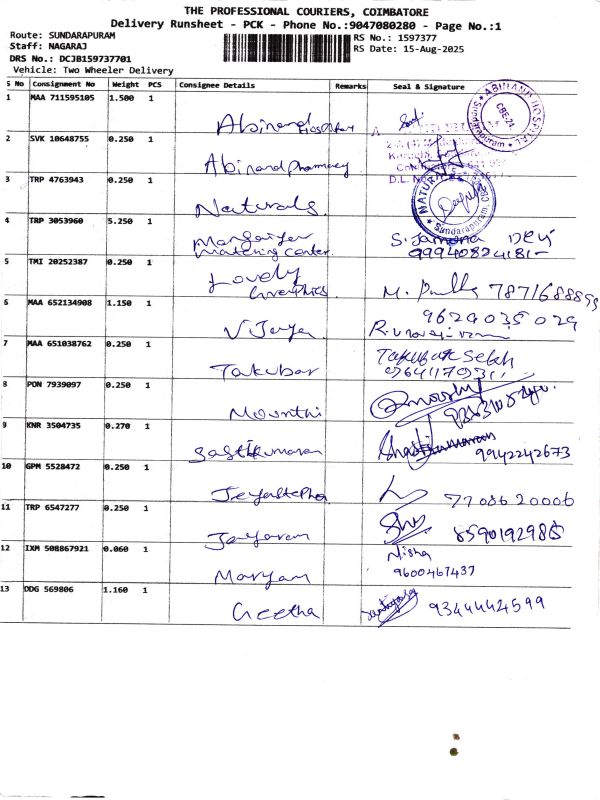 THE PROFESSIONAL COURIERS, COIMBATORE
Delivery Runsheet - PCK - Phone No.:9047080280 - Page No.:1
Route: SUNDARAPURAM
RS No.: 1597377
Staff: NAGARAJ
RS Date: 15-Aug-2025
DRS No.: DCJB159737701
Vehicle: Two Wheeler Delivery
S No Consignment No Weight PCS Consignee Details Remarks Seal & Signature
1 MAA 711595105 1.500 1
Abinand Hospital
ABINAND HOSPITAL
Sundarapuram
CBE-24
2 SVK 10648755 0.250 1
Abinand pharmacy
D.L.
3 TRP 4763943 0.250 1
Naturals
NATURALS
Sundarapuram, CBE
Deepika
4 TRP 3053960 5.250 1
Matching Center
S. Jamuna Devi
9994082418
5 TMI 20252387 0.250 1
Lovely
Graphics
7871688899
6 MAA 652134908 1.150 1
Vijaya
9629035029
7 MAA 651038762 0.250 1
Takubar
8 PON 7939097 0.250 1
Moorthi
9 KNR 3504735 0.270 1
Sasthikumaran
9942242673
10 GPM 5528472 0.250 1
7708620006
11 TRP 6547277 0.250 1
Jayaram
12 IXM 508867921 0.060 1
Maryam
Nisha
9600467437
13 DDG 569806 1.160 1
Geetha
93444424599